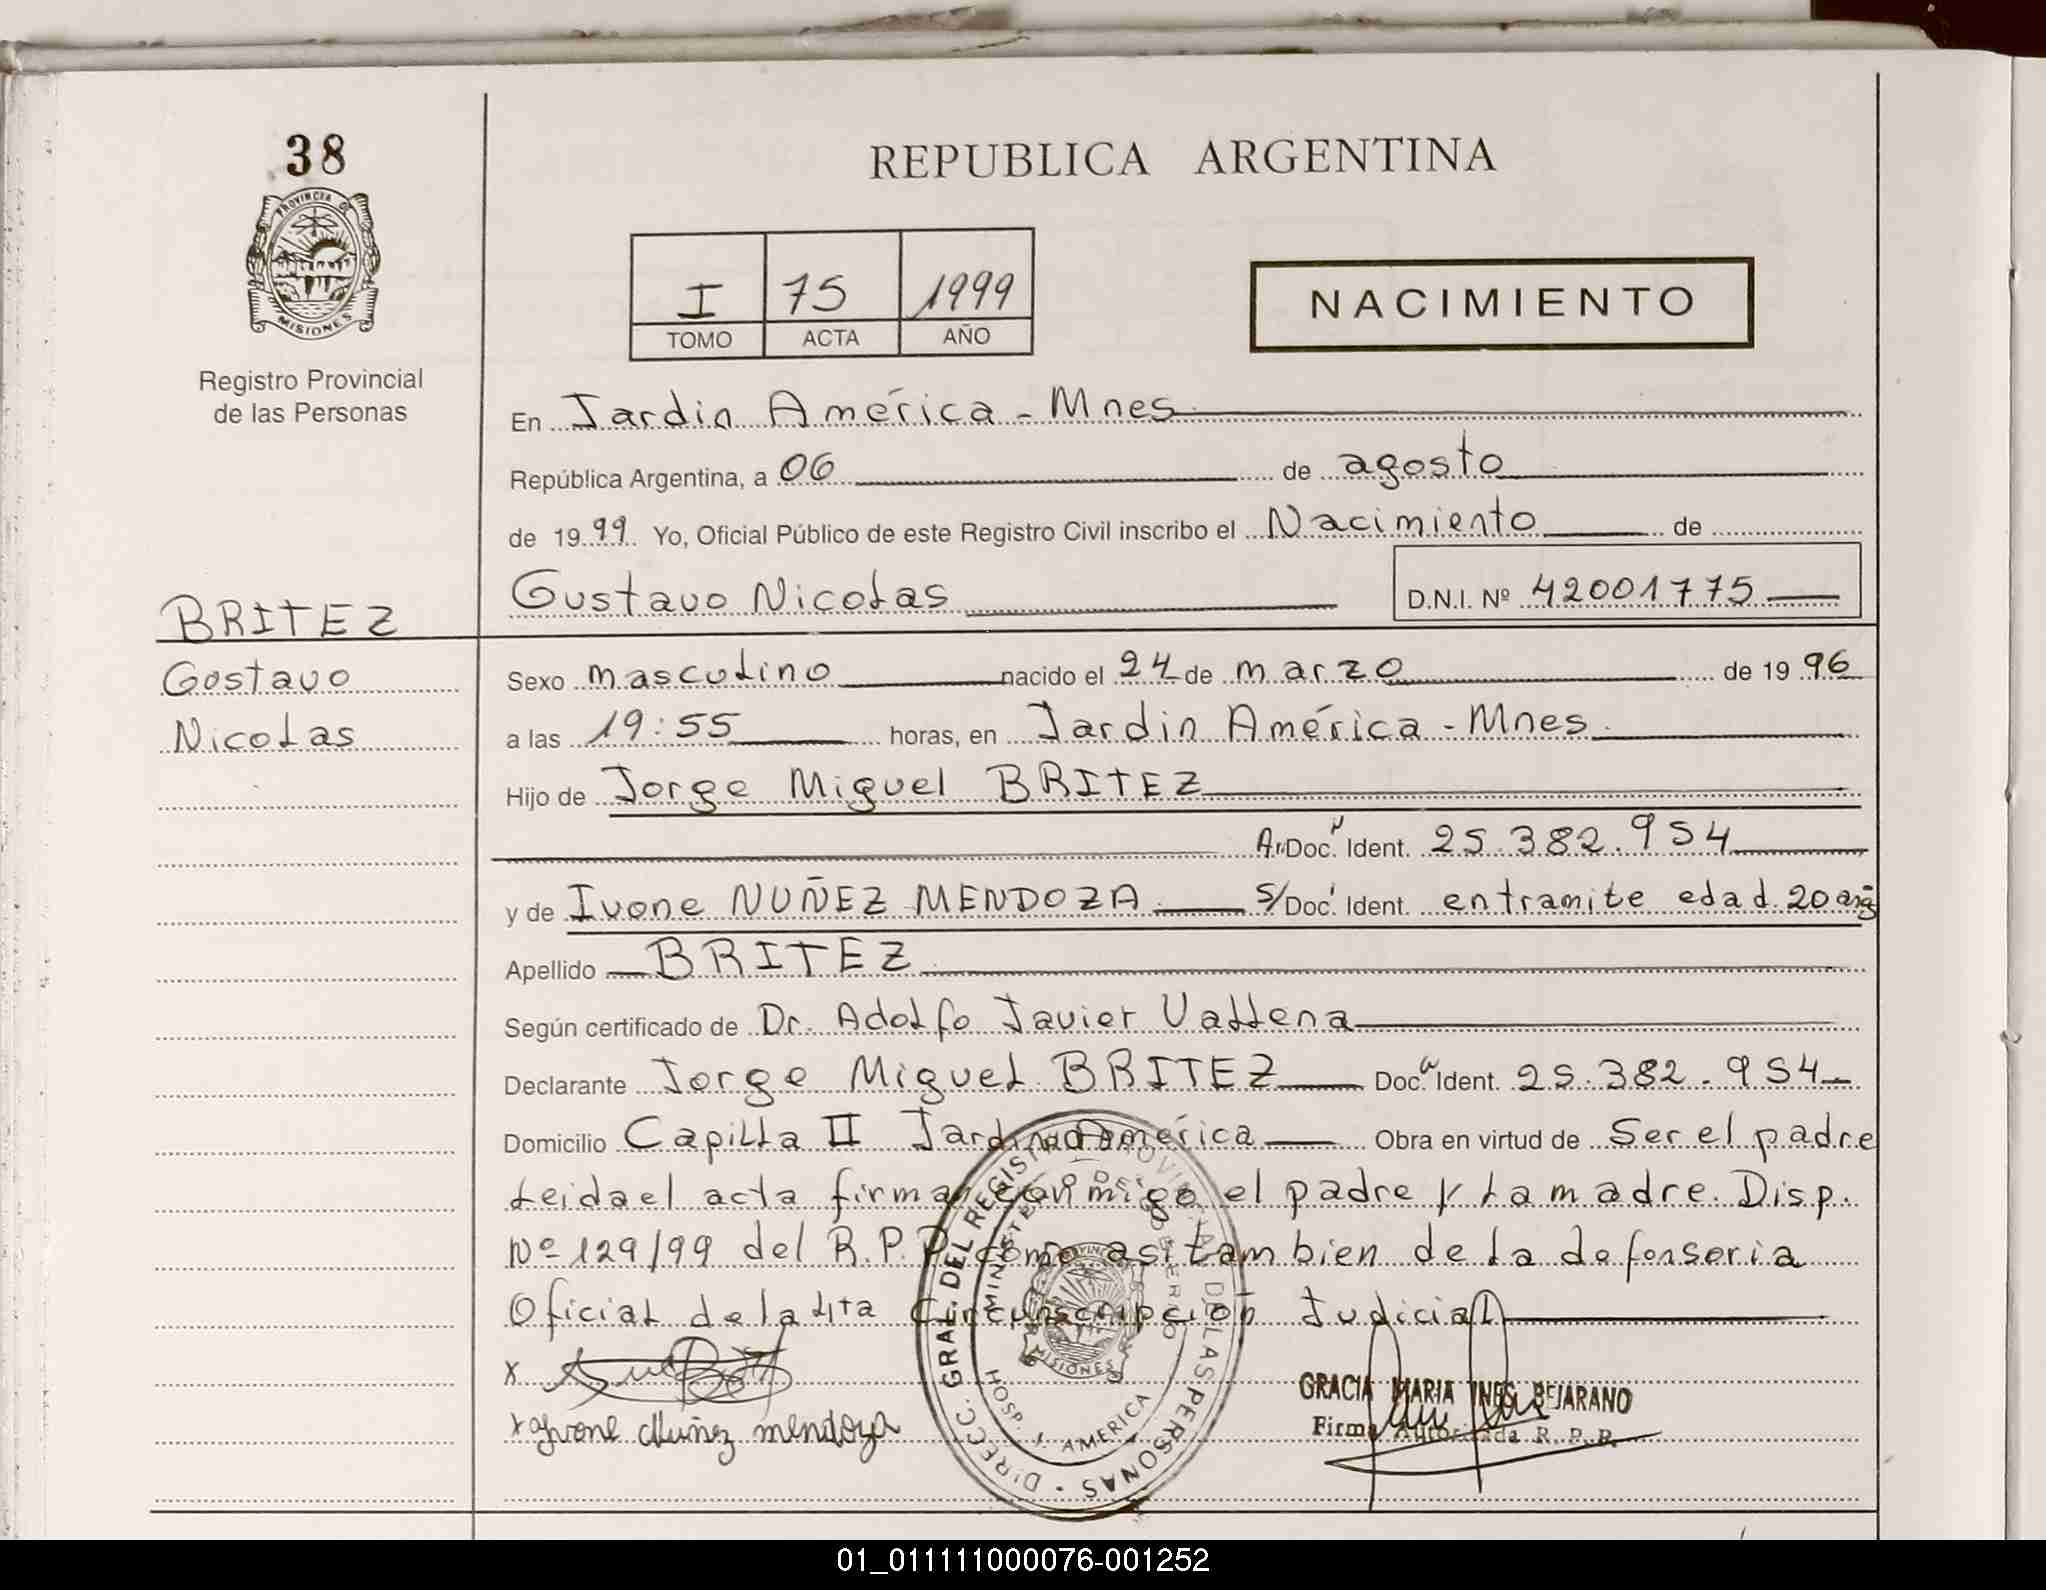 38
PROVINCIA DE
MISIONES
Registro Provincial
de las Personas
REPUBLICA ARGENTINA
I 75 1999
TOMO ACTA AÑO
NACIMIENTO
En Jardin América - Mnes
República Argentina, a 06 de agosto
de 1999 Yo, Oficial Público de este Registro Civil inscribo el Nacimiento de
Gustavo Nicolas D.N.I. Nº 42001775
BRITEZ
Gustavo
Nicolas
Sexo masculino nacido el 24 de marzo de 1996
a las 19:55 horas, en Jardin América - Mnes.
Hijo de Jorge Miguel BRITEZ
Doc. Ident. 25.382.954
y de Ivone NUÑEZ MENDOZA S/Doc. Ident. entramite edad 20 añs
Apellido BRITEZ
Según certificado de Dr. Adolfo Javier Vallena
Declarante Jorge Miguel BRITEZ Doc. Ident. 25.382.954
Domicilio Capilla II Jardin América Obra en virtud de Ser el padre
leida el acta firman conmigo el padre y la madre. Disp.
Nº 129/99 del R.P.P. como asi tambien de la defensoria
Oficial de la 4ta Circunscripcion Judicial
x
x Yvone Nuñez mendoza
DIRECC. GRAL. DEL REGISTRO PROVINCIAL DE LAS PERSONAS
MINISTERIO DE GOBIERNO
MISIONES
HOSP. J. AMERICA
GRACIA MARIA INES BEJARANO
Firma Autorizada R. P. P.
01_011111000076-001252